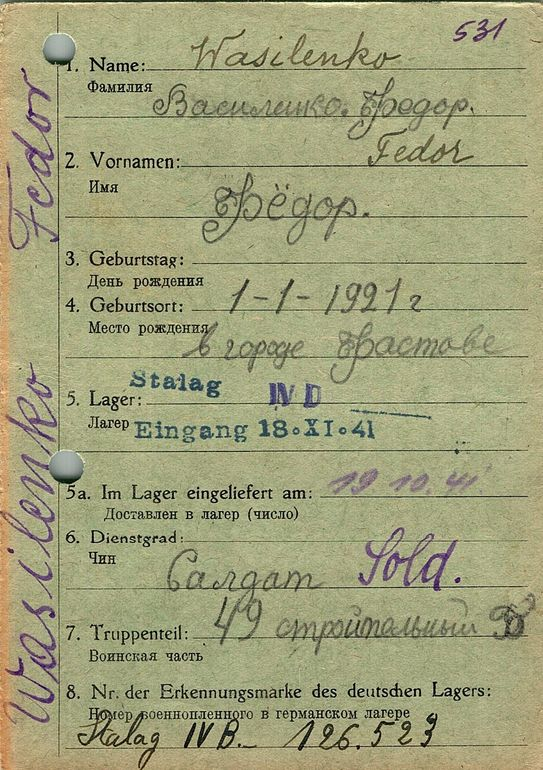 531
1. Name: Wasilenko
Фамилия
Василенко. Федор.
2. Vornamen: Fedor
Имя
Фёдор.
3. Geburtstag:
День рождения
4. Geburtsort: 1-1-1921 г
Место рождения
в городе Фастове
Stalag IV D
5. Lager:
Лагер Eingang 18.XI.41
5a. Im Lager eingeliefert am: 19 10. 41.
Доставлен в лагер (число)
6. Dienstgrad:
Чин
Салдат Sold.
7. Truppenteil: 49 строительный Б
Воинская часть
8. Nr. der Erkennungsmarke des deutschen Lagers:
Номер военнопленного в германском лагере
Stalag IV B. 126.523
Wasilenko Fedor